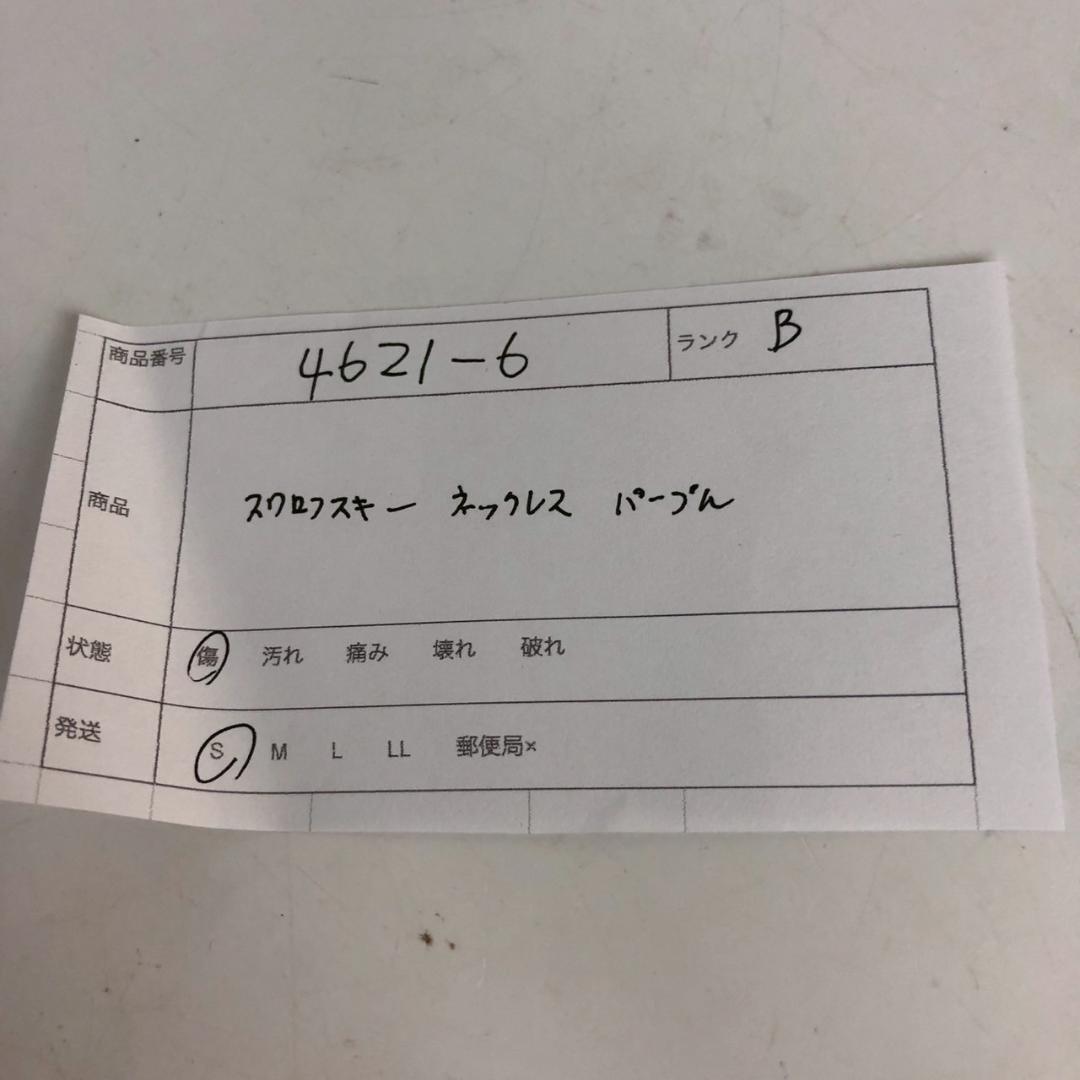 商品番号 4621-6 ランク B
商品 スワロフスキー ネックレス パープル
状態 傷 汚れ 痛み 壊れ 破れ
発送 S M L LL 郵便局×